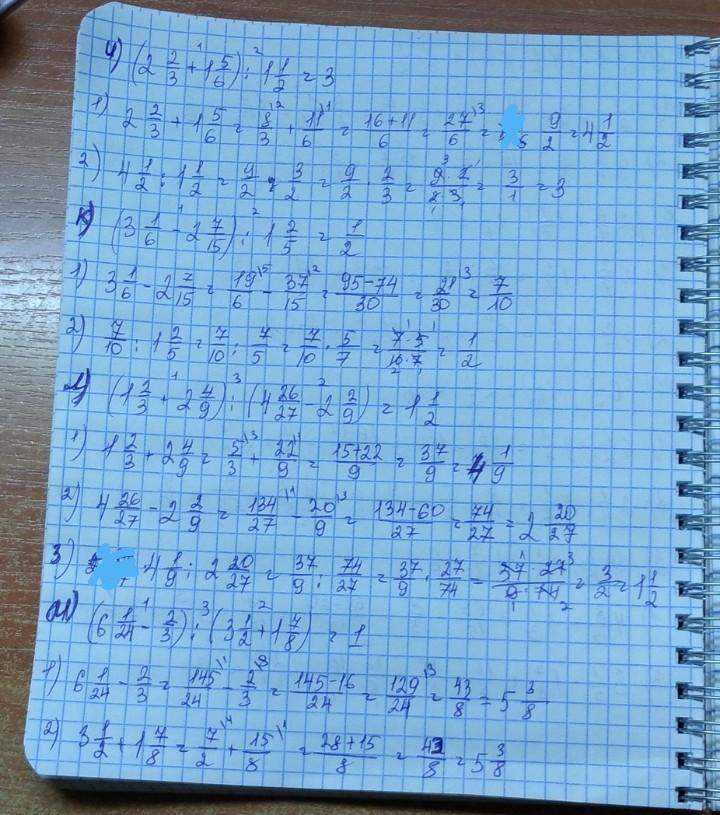 и) (2 2/3 + 1 5/6) : 1 1/2 = 3
1) 2 2/3 + 1 5/6 = 8/3 + 11/6 = 16+11/6 = 27/6 = 9/2 = 4 1/2
2) 4 1/2 : 1 1/2 = 9/2 : 3/2 = 9/2 · 2/3 = 9·2/2·3 = 3/1 = 3
к) (3 1/6 - 2 7/15) : 1 2/5 = 1/2
1) 3 1/6 - 2 7/15 = 19/6 - 37/15 = 95-74/30 = 21/30 = 7/10
2) 7/10 : 1 2/5 = 7/10 : 7/5 = 7/10 · 5/7 = 7·5/10·7 = 1/2
л) (1 2/3 + 2 4/9) : (4 26/27 - 2 2/9) = 1 1/2
1) 1 2/3 + 2 4/9 = 5/3 + 22/9 = 15+22/9 = 37/9 = 4 1/9
2) 4 26/27 - 2 2/9 = 134/27 - 20/9 = 134-60/27 = 74/27 = 2 20/27
3) 4 1/9 : 2 20/27 = 37/9 : 74/27 = 37/9 · 27/74 = 37·27/9·74 = 3/2 = 1 1/2
м) (6 1/24 - 2/3) : (3 1/2 + 1 7/8) = 1
1) 6 1/24 - 2/3 = 145/24 - 2/3 = 145-16/24 = 129/24 = 43/8 = 5 3/8
2) 3 1/2 + 1 7/8 = 7/2 + 15/8 = 28+15/8 = 43/8 = 5 3/8